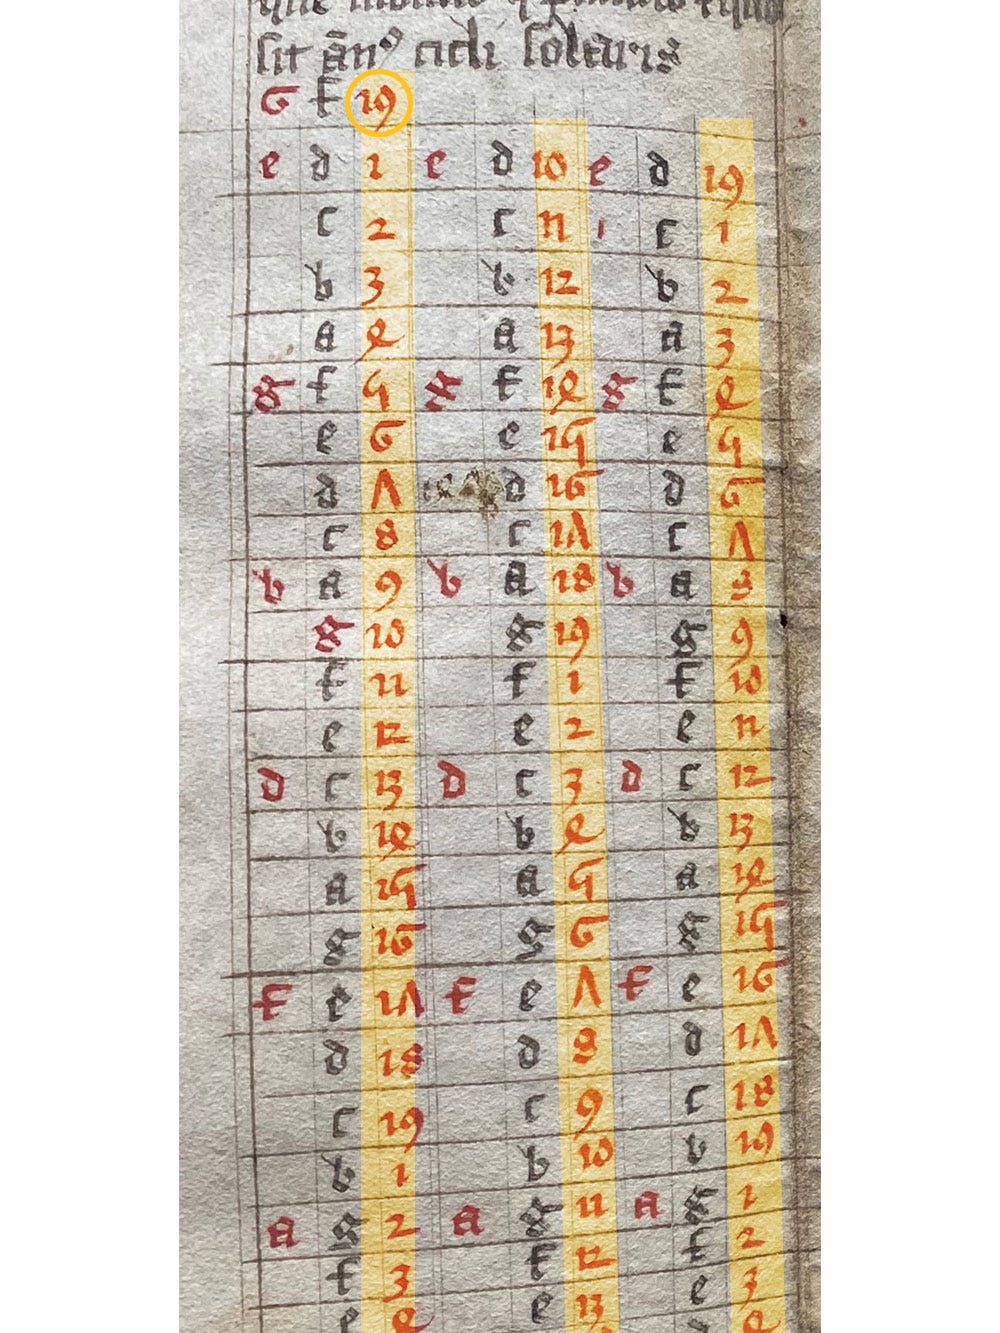 sit ān⁹ cicli solaris
G f 19
e d 1 e d 10 e d 19
c 2 c 11 c 1
b 3 b 12 b 2
a 4 a 13 a 3
g f 5 g f 14 g f 4
e 6 e 15 e 5
d 7 d 16 d 6
c 8 c 17 c 7
b a 9 b a 18 b a 8
g 10 g 19 g 9
f 11 f 1 f 10
e 12 e 2 e 11
d c 13 d c 3 d c 12
b 14 b 4 b 13
a 15 a 5 a 14
g 16 g 6 g 15
f e 17 f e 7 f e 16
d 18 d 8 d 17
c 19 c 9 c 18
b 1 b 10 b 19
a g 2 a g 11 a g 1
f 3 f 12 f 2
e 4 e 13 e 3
4